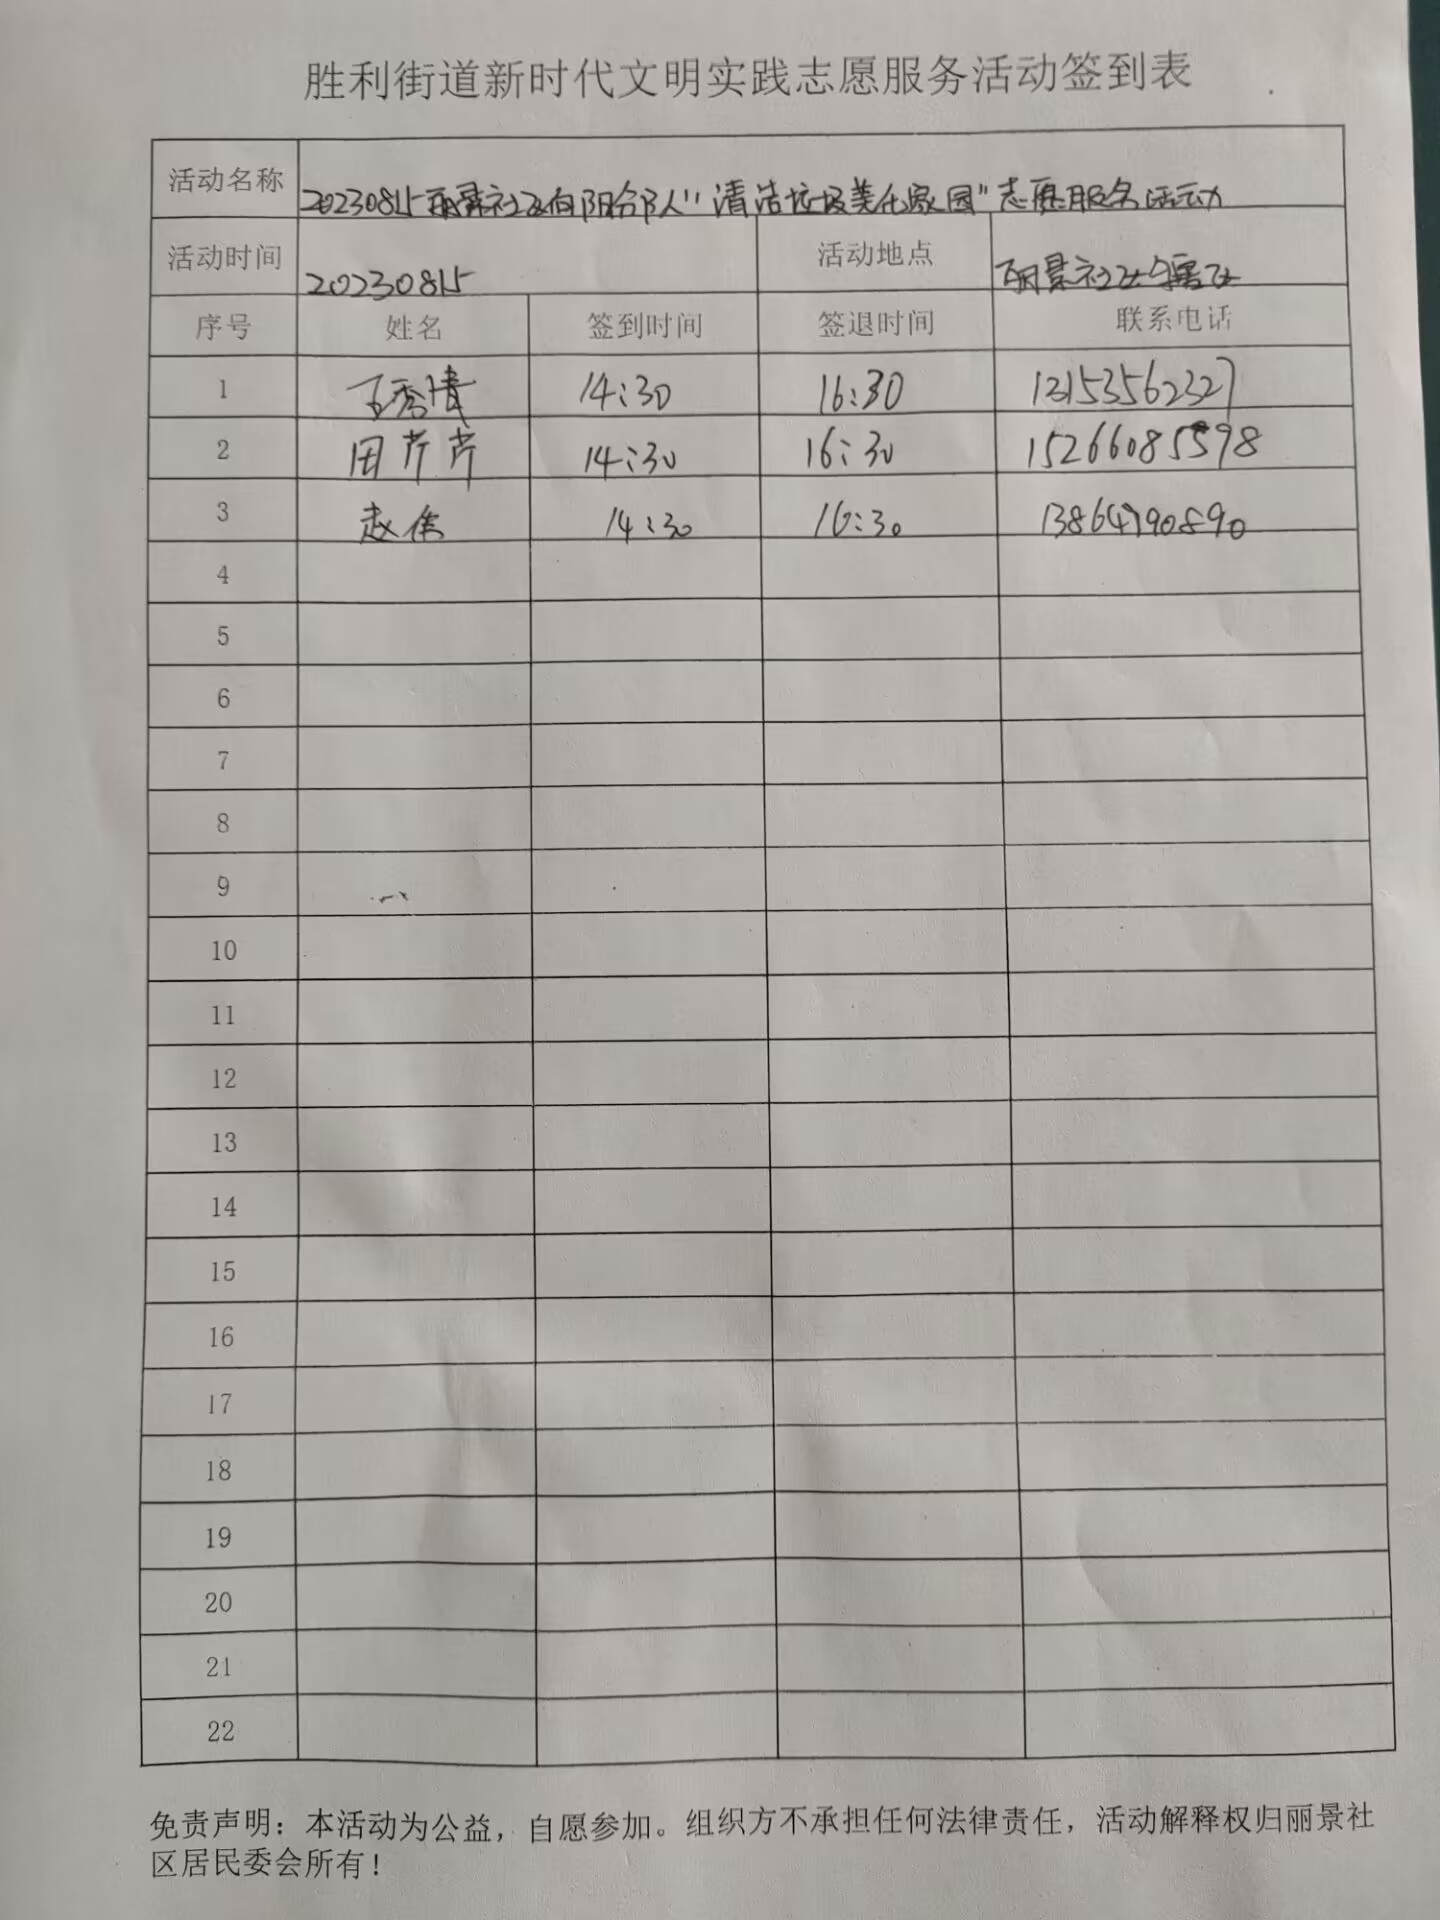 胜利街道新时代文明实践志愿服务活动签到表
活动名称 20230815丽景社区向阳邻人"清洁垃圾美化家园"志愿服务活动
活动时间 20230815 活动地点 丽景社区辖区
序号 姓名 签到时间 签退时间 联系电话
1 王秀倩 14:30 16:30 13153562327
2 田芹芹 14:30 16:30 15266085598
3 赵伟 14:30 16:30 13864790890
4
5
6
7
8
9
10
11
12
13
14
15
16
17
18
19
20
21
22
免责声明：本活动为公益，自愿参加。组织方不承担任何法律责任，活动解释权归丽景社
区居民委会所有！